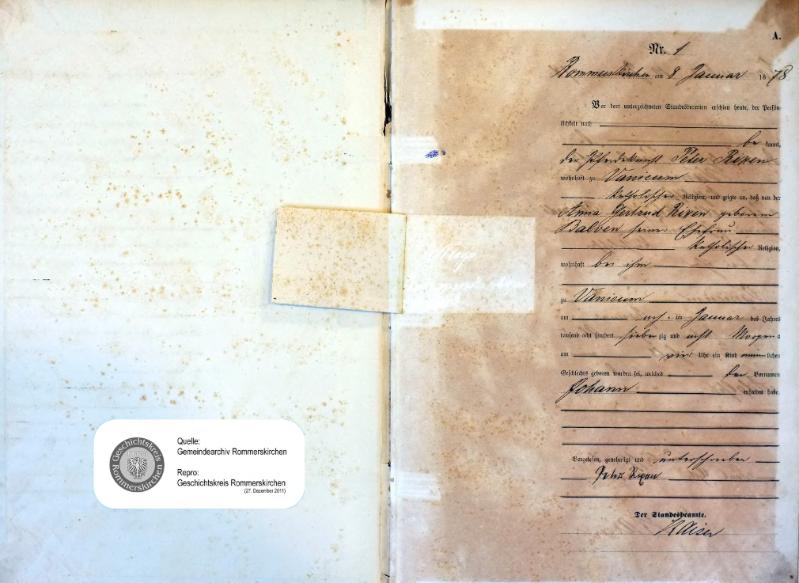 Quelle:
Gemeindearchiv Rommerskirchen
Repro:
Geschichtskreis Rommerskirchen
(27. Dezember 2011)
Geschichtskreis
Rommerskirchen
A.
Nr. 1
Rommerskirchen am 8 Januar 1878
Vor dem unterzeichneten Standesbeamten erschien heute, der Persön-
lichkeit nach
be kannt,
der Peter Rixen
wohnhaft zu Vanicum
katholischer Religion, und zeigte an, daß von der
Anna Gertrud Rixen geborene
Balven seiner Ehefrau
katholischer Religion,
wohnhaft bei ihm
zu Vanicum
am Januar des Jahres
tausend acht hundert siebenzig und acht Morgens
um vier Uhr ein Kind männlichen
Geschlechts geboren worden sei, welches den Vornamen
Johann
erhalten habe.
Vorgelesen, genehmigt und unterschrieben
Peter Rixen
Der Standesbeamte.
Kaiser